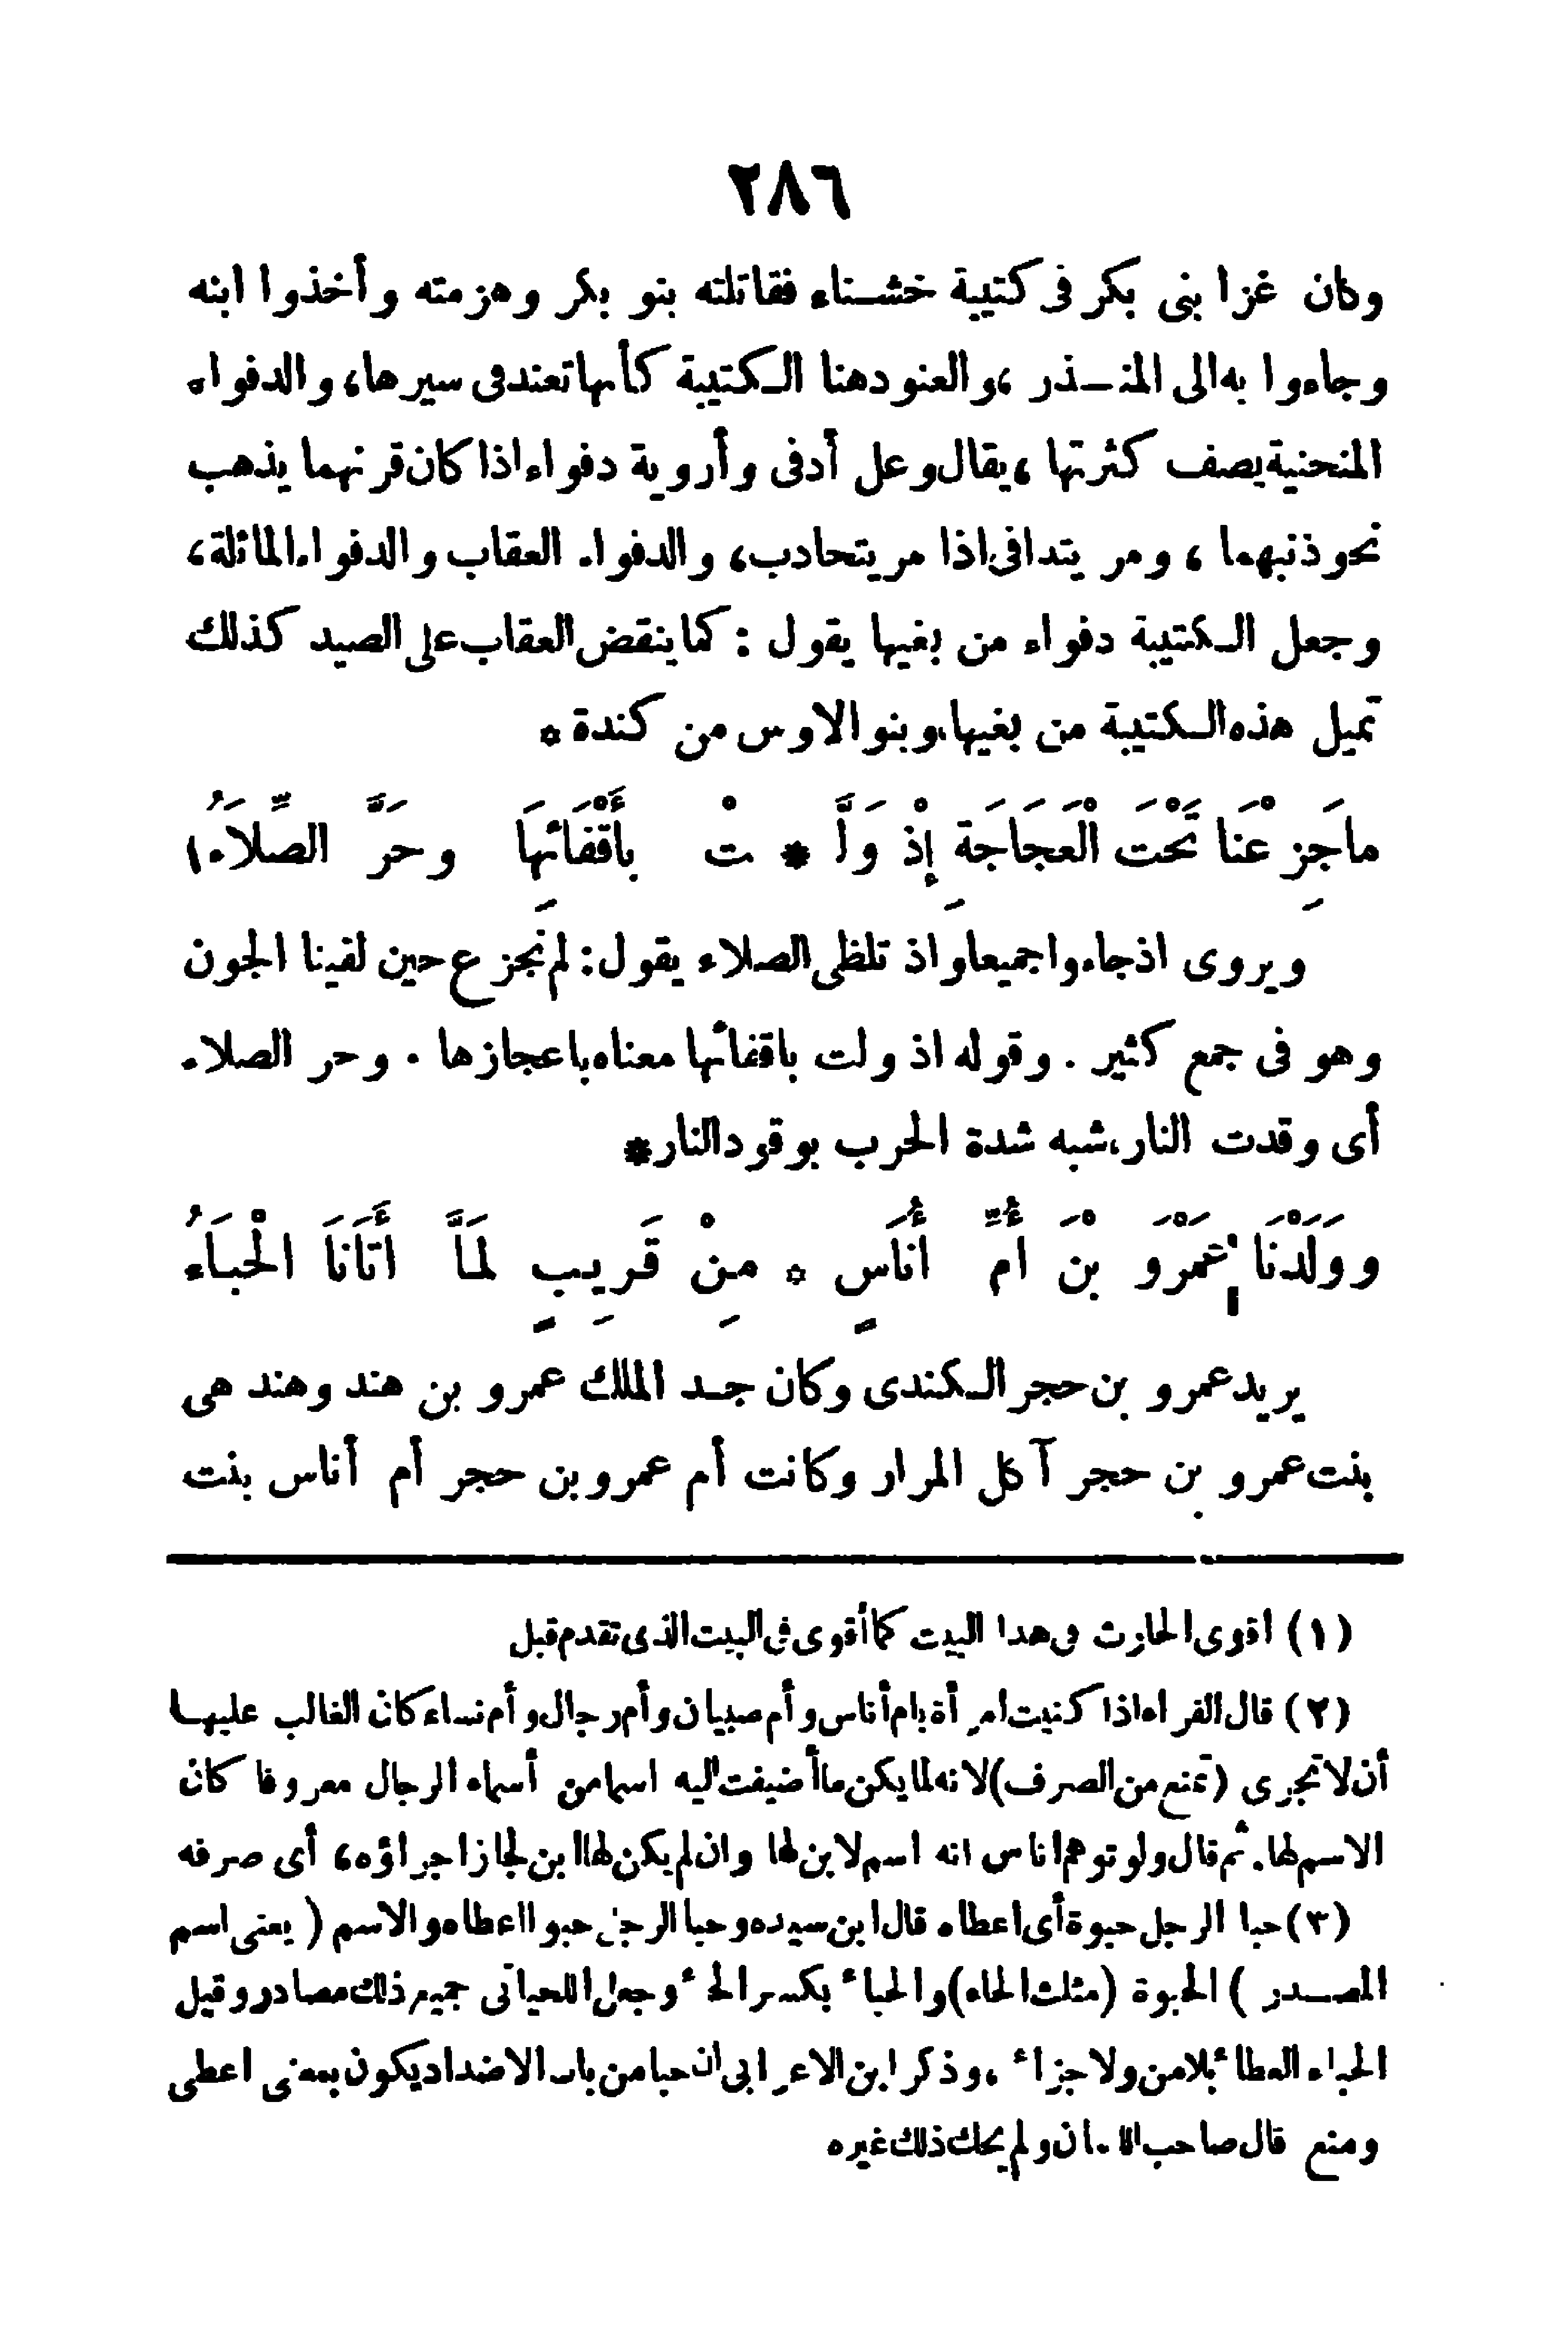 ٢٨٦
وكان غزا بنى بكر فى كتيبة خشناء فقاتلته بنو بكر وهزمته وأخذوا ابنه
وجاءوا به الى المنذر ، والعنود هنا الكتيبة كأنها تعند فى سيرها ، والدفواء
المنحنية يصف كثرتها ، يقال وعل أدفى وأروية دفواء اذا كان قرنهما يذهب
نحو ذنبهما ، ومر يتدافى اذا مر يتحادب ، والدفواء العقاب والدفواء المائلة ،
وجعل الكتيبة دفواء من بغيها يقول : كما ينقض العقاب على الصيد كذلك
تميل هذه الكتيبة من بغيها ، وبنو الاوس من كندة *
ماجَزِعْنَا تَحْتَ الْعَجَاجَةِ إِذْ وَلَّ * تْ بِأَقْفَائِهَا وحَرَّ الصِّلَاَءُ ١
ويروى اذ جاءوا جميعا واذ تلظى الصلاء يقول : لم نجزع حين لقينا الجون
وهو فى جمع كثير . وقوله اذ ولت باقفائها معناه باعجازها . وحر الصلاء
أى وقدت النار ، شبه شدة الحرب بوقود النار *
وَوَلَدْنَا عَمْرَو بْنَ أُمِّ أُنَاسٍ * مِنْ قَرِيبٍ لَمَّا أَتَانَا الْحِبَاَءُ
يريد عمرو بن حجر الكندى وكان جد الملك عمرو بن هند وهند هى
بنت عمرو بن حجر آكل المرار وكانت أم عمرو بن حجر أم أناس بنت
(١) اقوى الحارث فى هذا البيت كما أقوى فى البيت الذى تقدم قبل
(٢) قال الفراء اذا كنيت امرأة بام أناس وأم صبيان وأم رجال وأم نساء كان الغالب عليها
أن لا تجرى (تمنع من الصرف) لانه لما يكن ما أضيفت اليه اسما من أسماء الرجال معروفا كان
الاسم لها . ثم قال ولو توهم اناس انه اسم لابن لها وان لم يكن لها ابن لجاز اجراؤه ، أى صرفه
(٣) حبا الرجل حبوة أى اعطاه قال ابن سيده وحبا الرجل حبوا اعطاه والاسم ( يعنى اسم
المصدر ) الحبوة (مثلث الحاء) والحباء بكسر الحاء وجعل اللحيانى جميع ذلك مصادر وقيل
الحباء العطاء بلا من ولا جزاء ، وذكر ابن الاعرابى ان حبا من باب الاضداد يكون بمعنى اعطى
ومنع قال صاحب اللسان ولم يحك ذلك غيره